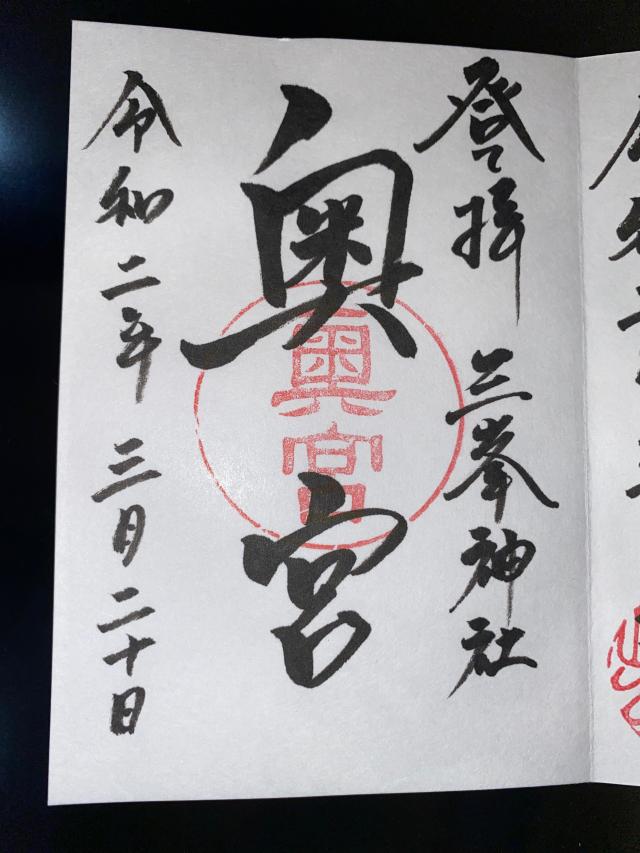 登拝 三峯神社
奥宮
奥宮
令和二年 三月二十日